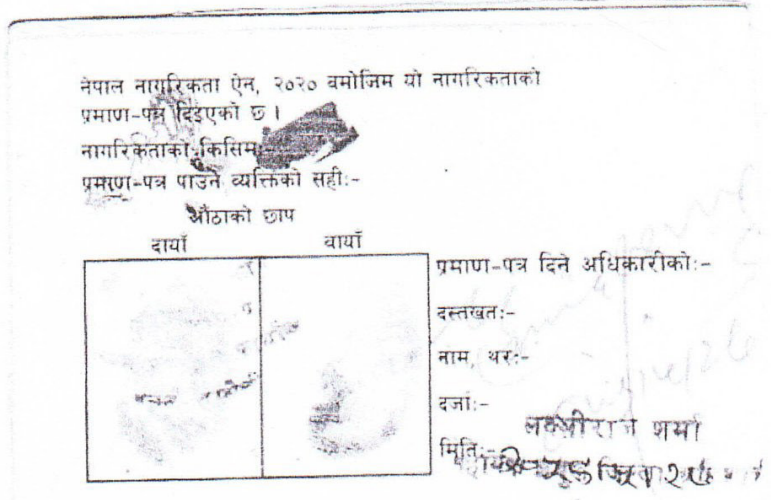 नेपाल नागरिकता ऐन, २०२० वमोजिम यो नागरिकताको
प्रमाण-पत्र दिइएको छ ।
नागरिकताको किसिम:-
प्रमाण-पत्र पाउने व्यक्तिको सही:-
औंठाको छाप
दायाँ बायाँ
प्रमाण-पत्र दिने अधिकारीको:-
दस्तखत:-
नाम, थर:-
दर्जा:-
लक्ष्मीराज शर्मा
मिति:-